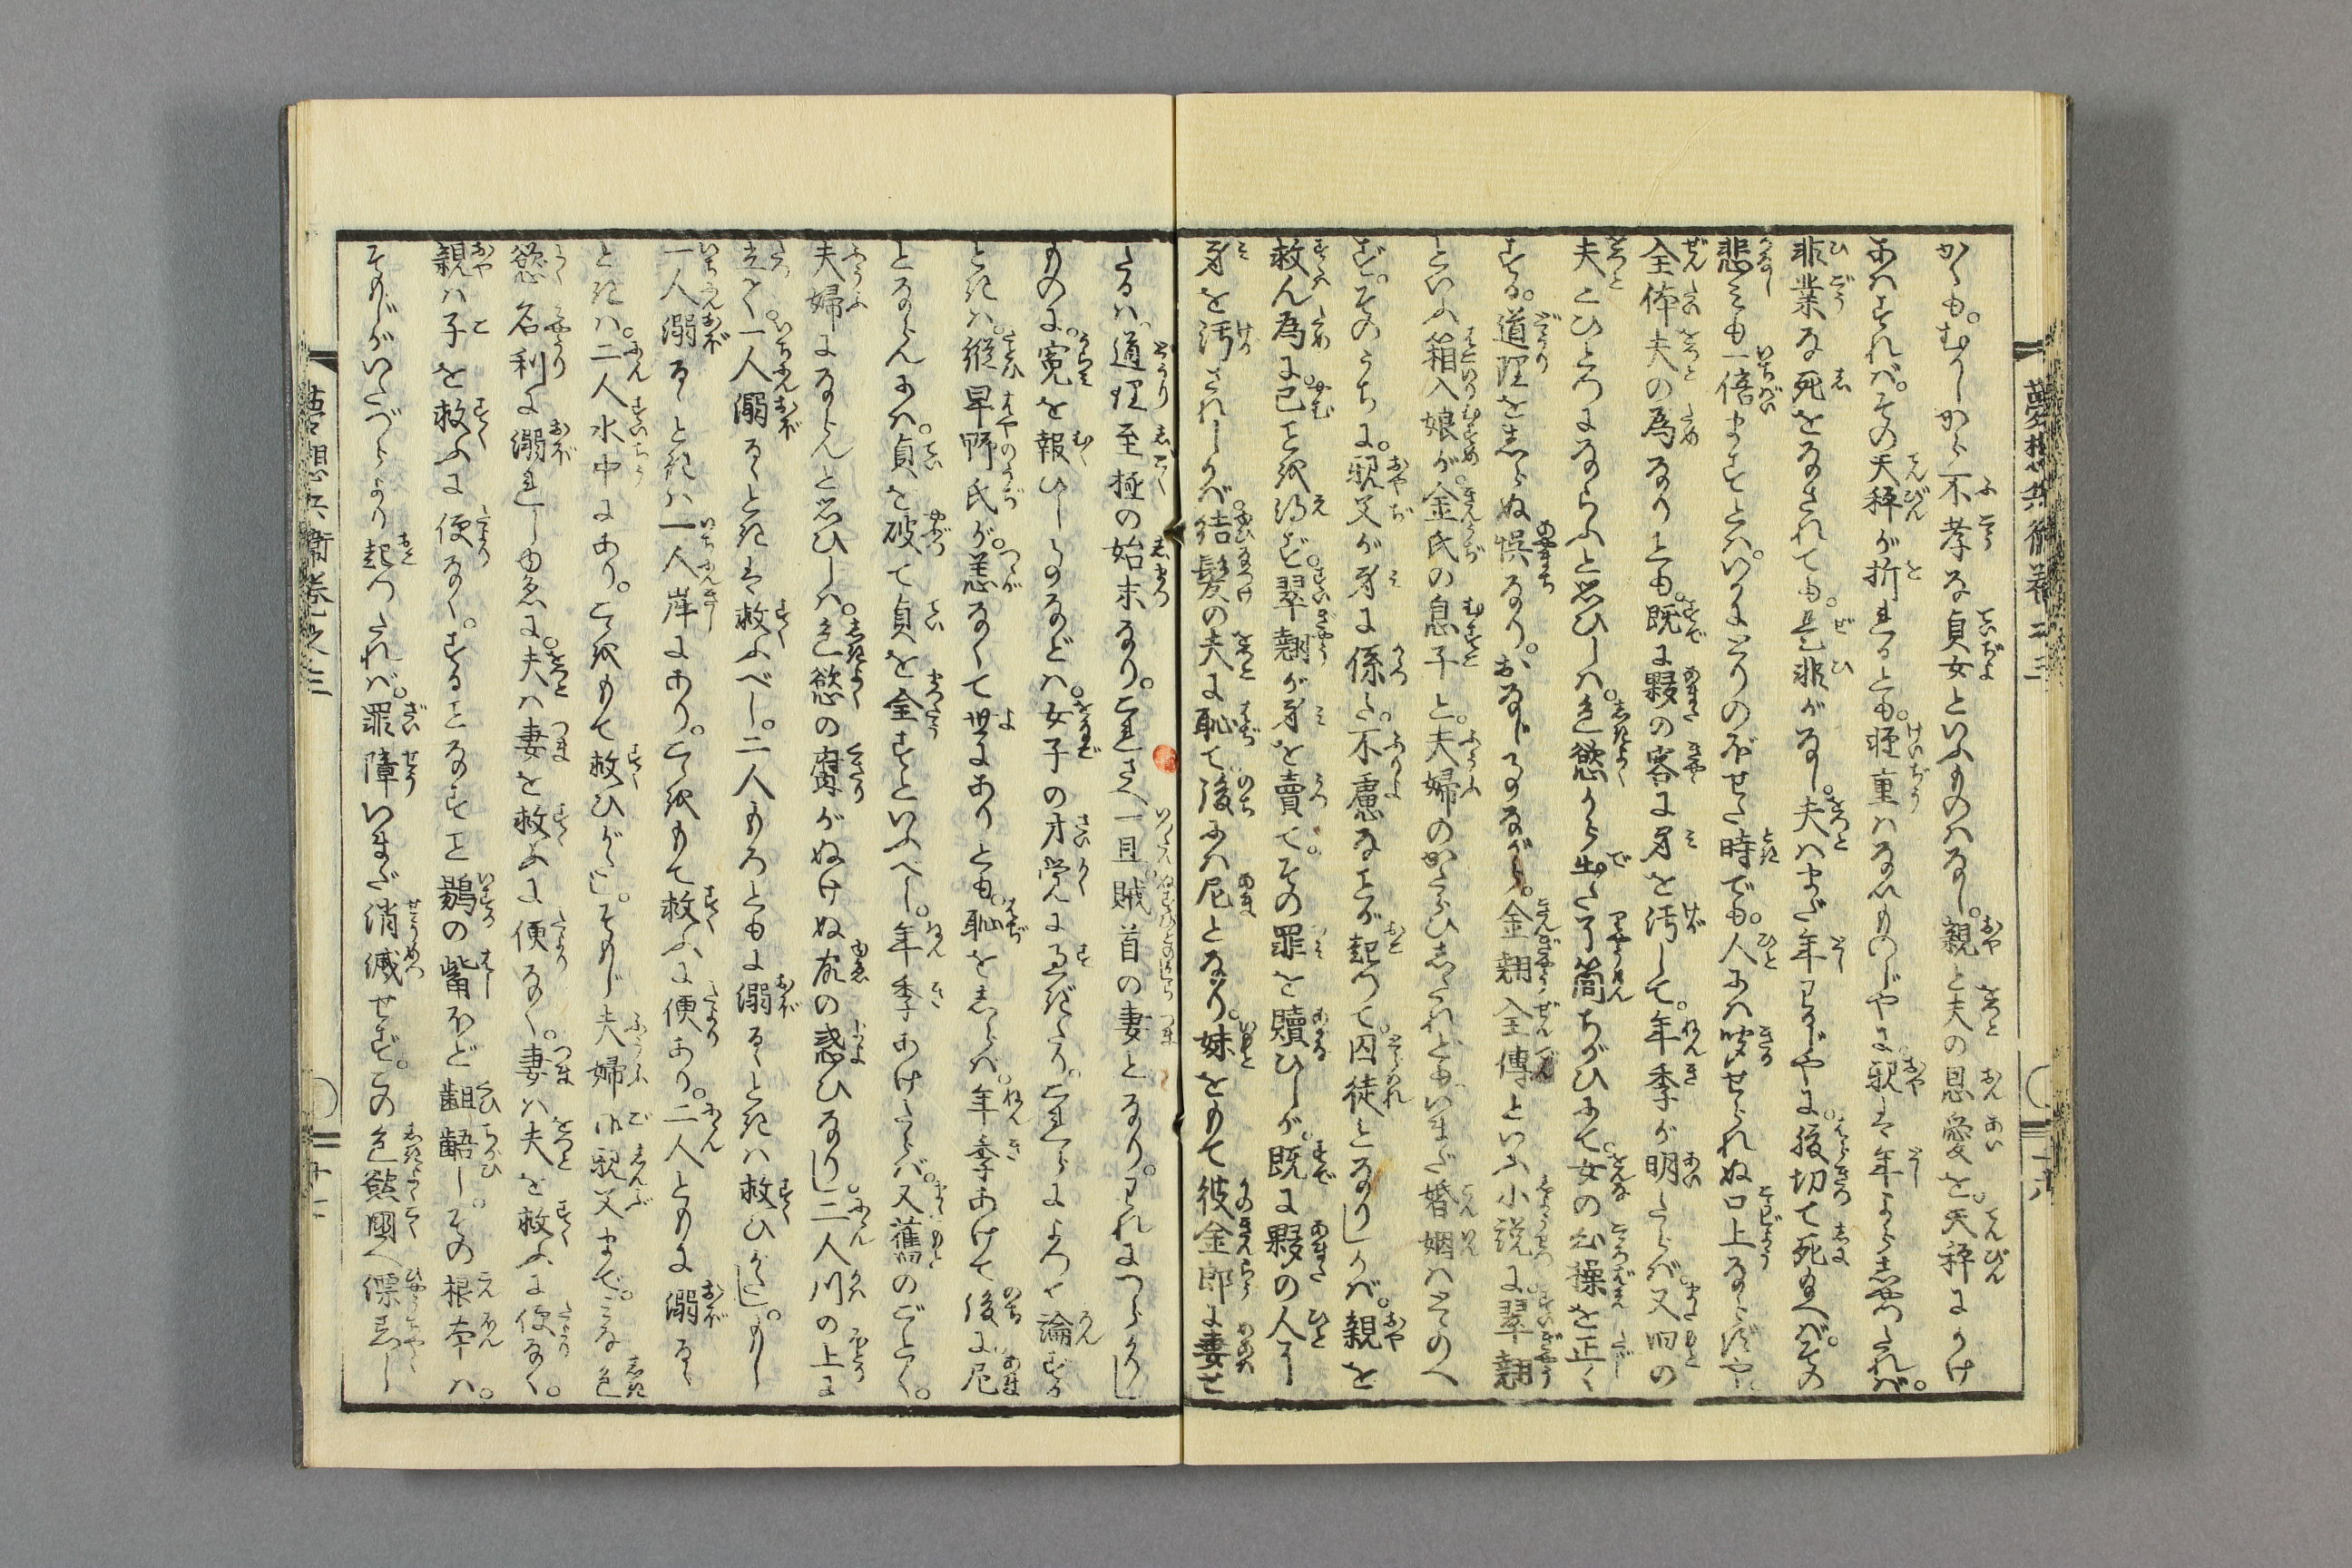 夢想兵衛巻之三
から、むかしから不孝な貞女といふものはなし。親と夫の恩愛を。天秤にかけ
あはすれば。その天秤が折るとも。軽重はなひものじやに親は年よらしつたれば。
非業な死をなされても。是非がなし。夫はまだ年わるじやに。腹切て死ねば。その
悲しみも一倍ますとは。いかにとりのぼせた時でも。人には聞せられぬ口上ならずや。
全体夫の為なりとも。既に夥の客に身を汚して。年季が明たらば。又旧の
夫とひとつにならふと思ひしは。色慾から出た了簡ちがひにて。女の心操を正く
する。道理をしらぬ悞なり。おなじ事ながら。金翹全傳といふ小説に。翠翹
といふ箱入娘が。金氏の息子と。夫婦のかたらひしたれども。いまだ婚姻はとゝのへ
ず。そのうちに。親父が身に係た。不慮なことが起つて。囚徒となりしかば。親を
救ん為に。已ことを得ず。翠翹が身を賣て。その罪を贖ひしが。既に夥の人に
身を汚されしかば。結髪の夫に恥て後には尼となり。妹をもて彼金郎に妻せ
たるは。道理至極の始末なり。これさへ一旦賊首の妻となり。われにつらかりし
ものに。寃を報ひし事などは。女子の才覚に過ぎたり。これらによつて論ずる
ときは。縦早野氏が。恙なくて世にありとも。恥をしらば。年季あけて後に尼
とならんには。貞を破て貞を全すといふべし。年季あけたらば。又舊のごとく。
夫婦にならんと思ひしは。色慾の腐がぬけぬ故の惑ひなり。二人川の上に
立て。一人溺るゝときは救ふべし。二人もろともに溺るゝときは救ひがたし。もし
一人溺るゝときは一人岸にあり。こゝをもて救ふに便あり。二人ともに溺るゝ
ときは。二人水中にあり。こゝをもて救ひがたし。そもじ夫婦御親父まで。みな色
慾名利に溺れしゆゑに。夫は妻を救ふに便なく。妻は夫を救ふに便なく。
親は子を救ふに便なく。することなすこと鶍の觜ほど齟齬し。その根本は。
そもじがいたづらより起つたれば。罪障いまだ消滅せず。この色慾國へ漂泊し
夢想兵衛巻之三
十二